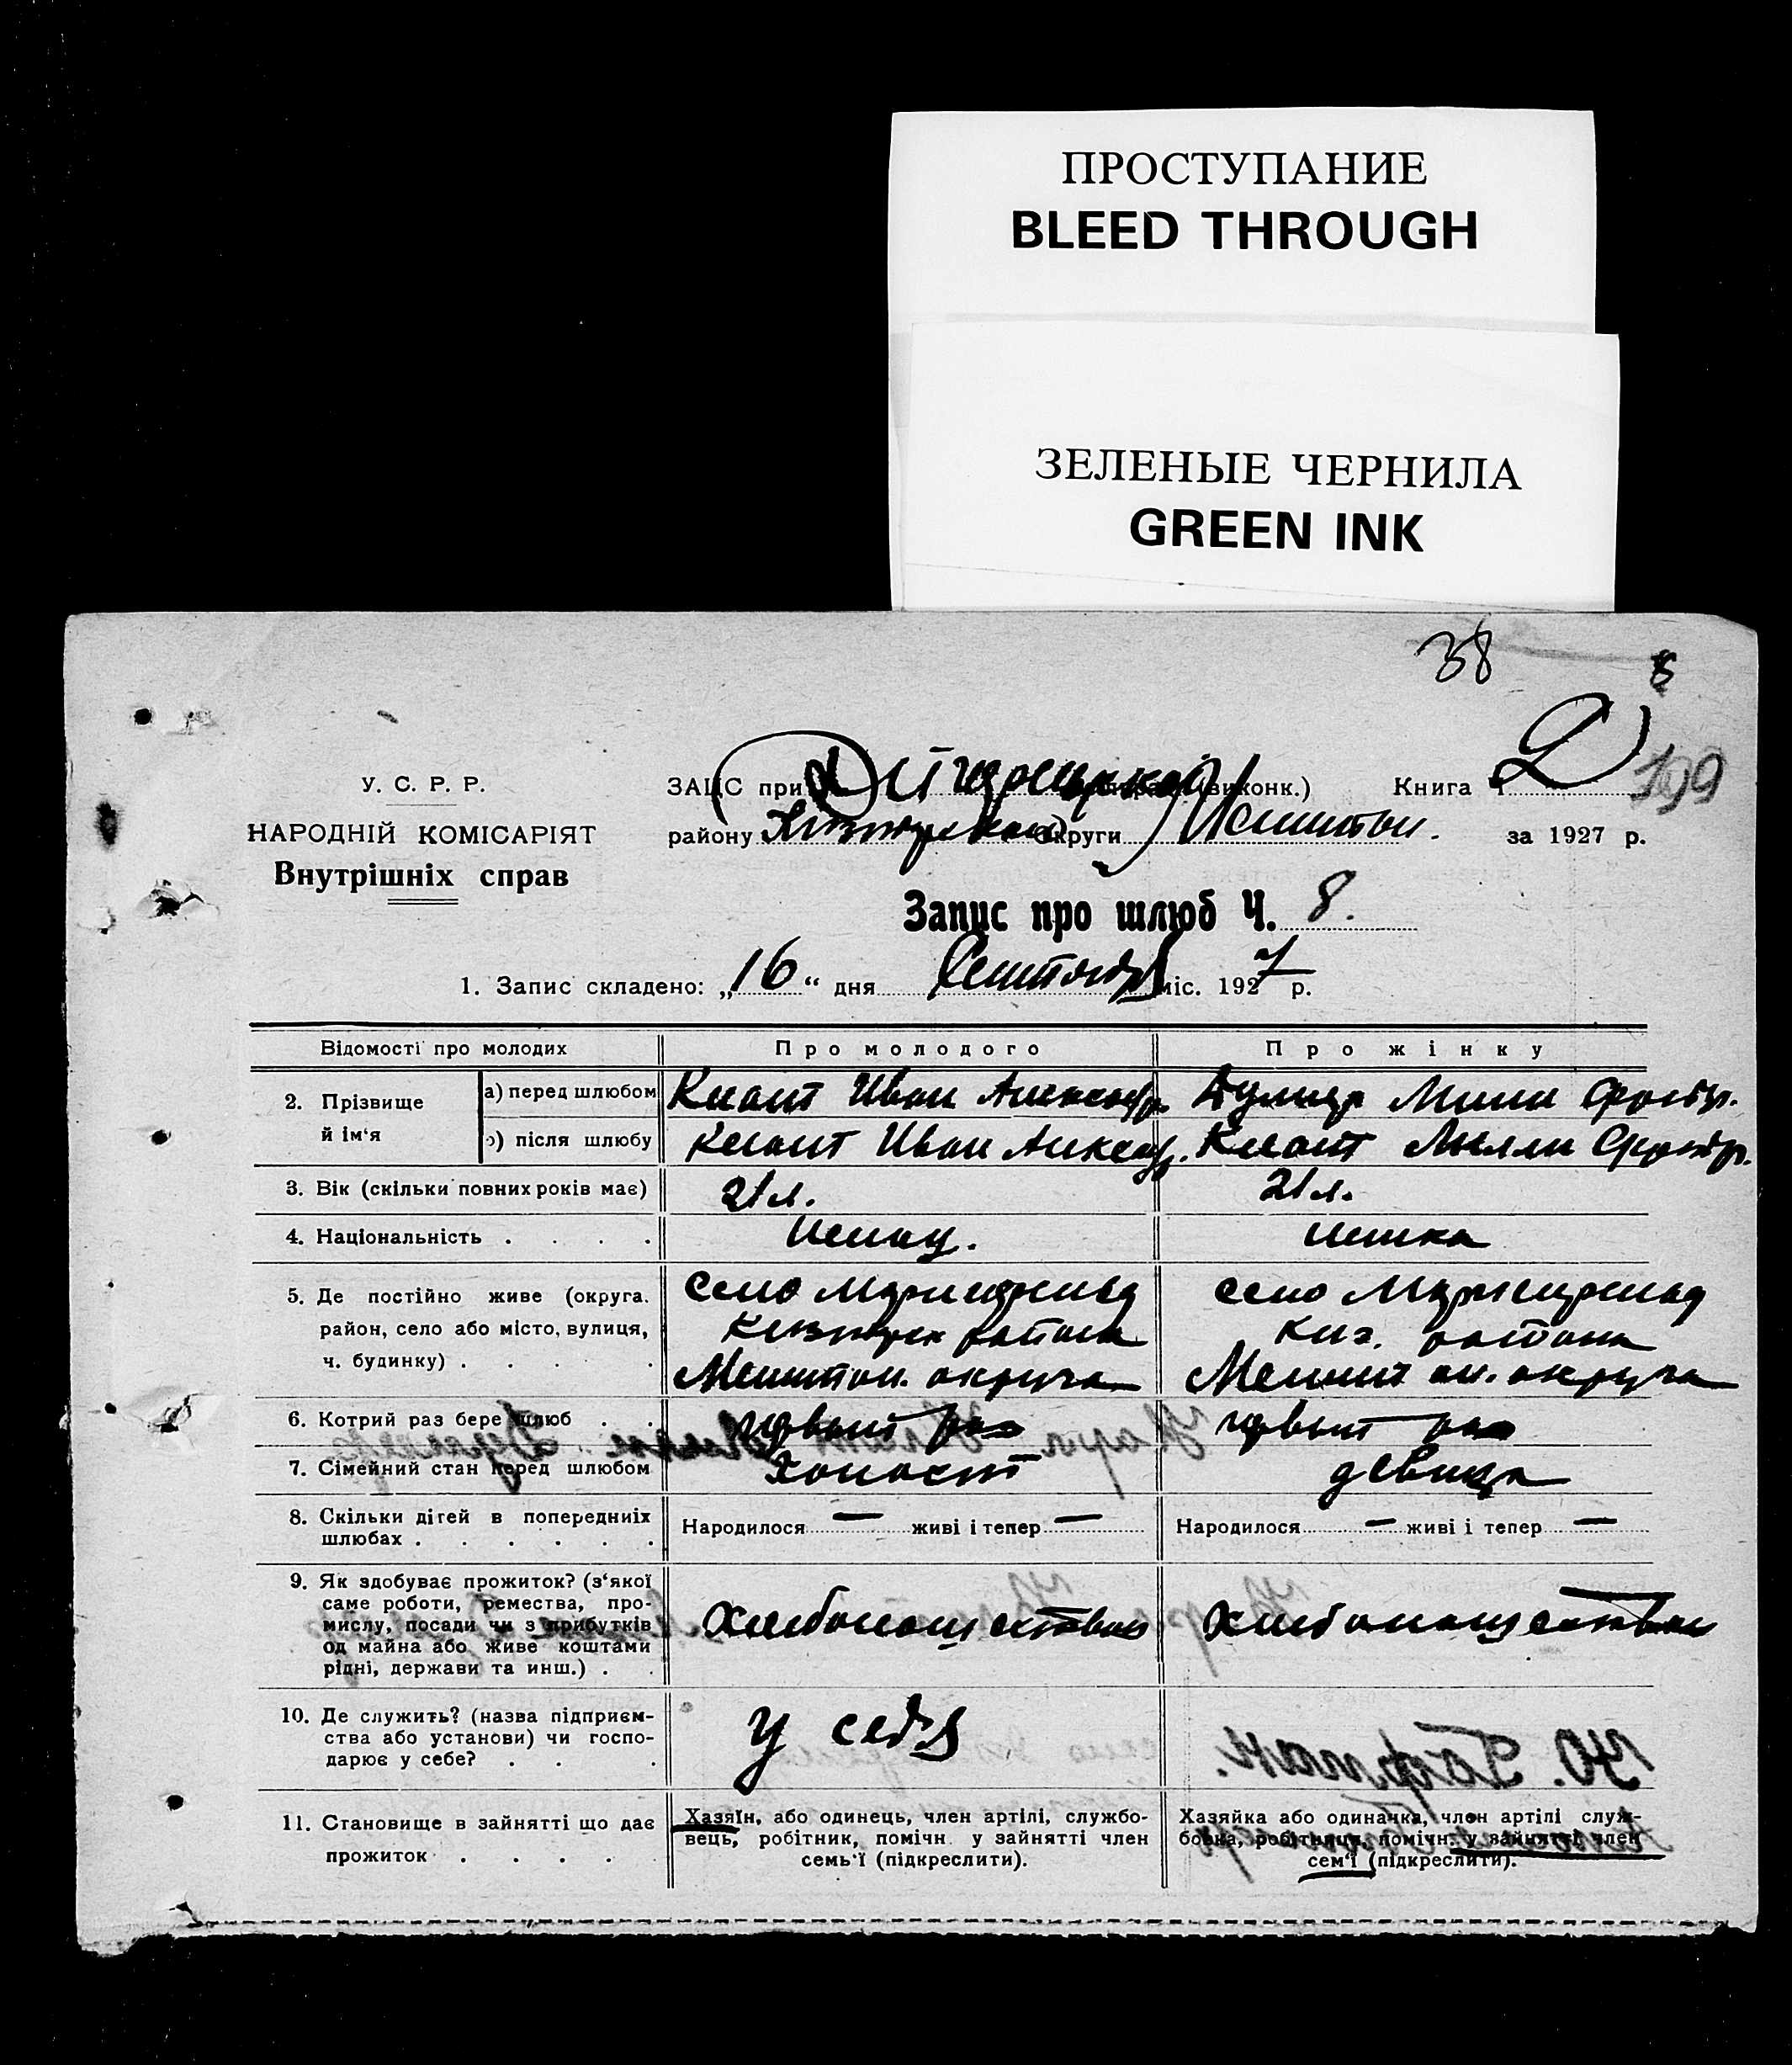 ПРОСТУПАНИЕ
BLEED THROUGH
ЗЕЛЕНЫЕ ЧЕРНИЛА
GREEN INK
38
8
199
У. С. Р. Р.
НАРОДНІЙ КОМІСАРІЯТ
Внутрішніх справ
ЗАЦС при виконк.) Книга Ч
району округи за 1927 р.
Запис про шлюб Ч. 8.
1. Запис складено: „16“ дня Сентября міс. 1927 р.
Відомості про молодих Про молодого Про жінку
2. Прізвище й ім'я
а) перед шлюбом Иван Александр.
б) після шлюбу Иван Александр.
3. Вік (скільки повних років має) 21 л. 21 л.
4. Національність . . . . немец. немка
5. Де постійно живе (округа, село село
район, село або місто, вулиця, района Киз. района
ч. будинку) . . . . . округа округа
6. Котрий раз бере шлюб . . первый раз первый раз
7. Сімейний стан перед шлюбом холост девица
8. Скільки дітей в попередніх Народилося — живі і тепер — Народилося — живі і тепер —
шлюбах . . . . . .
9. Як здобуває прожиток? (з'якої
саме роботи, ремества, про-
мислу, посади чи з прибутків
од майна або живе коштами
рідні, держави та инш.) . .
10. Де служить? (назва підприєм- у себя
ства або установи) чи госпо-
дарює у себе? . . .
11. Становище в зайнятті що дає
прожиток . . . . .
Хазяїн, або одинець, член артілі, службо-
вець, робітник, помічн. у зайнятті член
семь'ї (підкреслити).
Хазяйка або одиначка, член артілі служ-
бовка, робітниця, помічн. у зайнятті член
сем'ї (підкреслити).